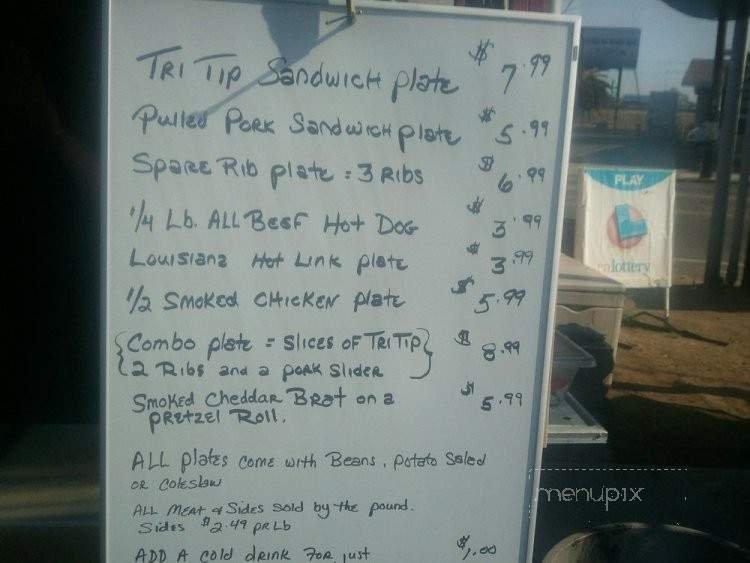 TRI TIP SANDWICH plate $7.99
Pulled PORK SANDWICH plate $5.99
SPARE RIB plate = 3 RIBS $6.99
1/4 Lb. ALL BEEF Hot DOG $3.99
LOUISIANA Hot LINK plate $3.99
1/2 SMOKED CHICKEN plate $5.99
{Combo plate = SLICES OF TRI TIP} $8.99
{2 RIBS and a poRK SLIDER}
SMOKED CHEDDAR BRAT on a $5.99
PRETZEL ROLL.
ALL plates come with Beans, potato Salad
OR coleslaw
ALL MEAT & Sides sold by the pound.
Sides $2.49 PR Lb
ADD A cold drink FOR just $1.00
PLAY
calottery
menupix